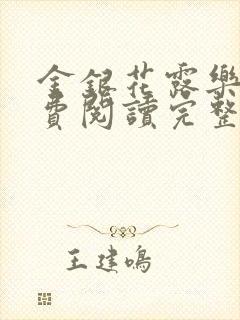 金銀花露樂
費閱讀完整
王建鳴